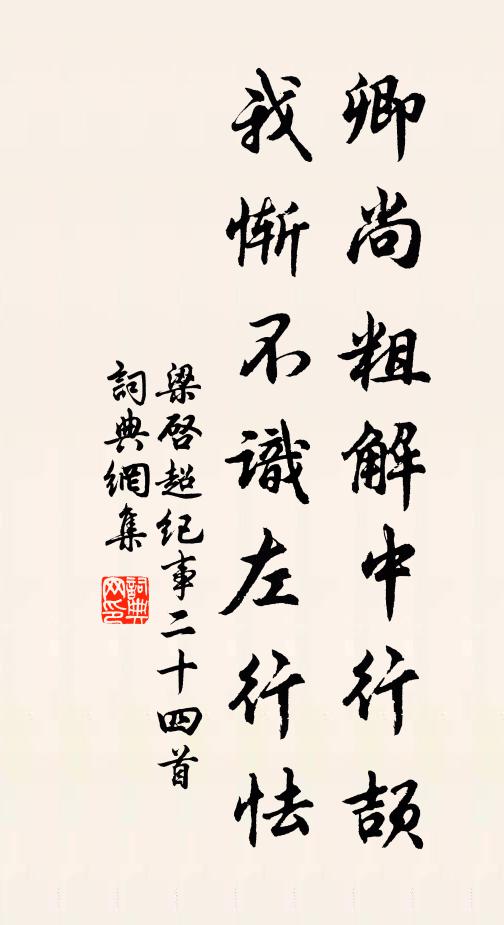 卿尚粗解中行颉
我惭不識左行怯
梁啓超纪事二十四首
詞典網集
詞典
网印